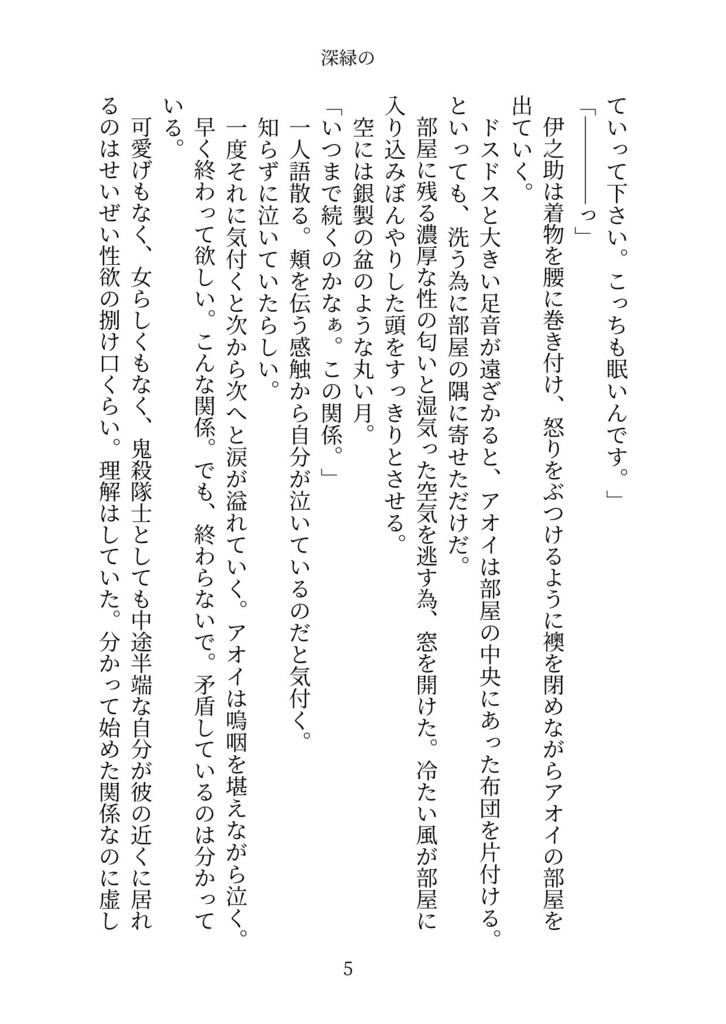 深緑の
ていって下さい。こっちも眠いんです。」
「――――っ」
　伊之助は着物を腰に巻き付け、怒りをぶつけるように襖を閉めながらアオイの部屋を
出ていく。
　ドスドスと大きい足音が遠ざかると、アオイは部屋の中央にあった布団を片付ける。
といっても、洗う為に部屋の隅に寄せただけだ。
　部屋に残る濃厚な性の匂いと湿気った空気を逃す為、窓を開けた。冷たい風が部屋に
入り込みぼんやりした頭をすっきりとさせる。
　空には銀製の盆のような丸い月。
「いつまで続くのかなぁ。この関係。」
　一人語散る。頬を伝う感触から自分が泣いているのだと気付く。
知らずに泣いていたらしい。
　一度それに気付くと次から次へと涙が溢れていく。アオイは嗚咽を堪えながら泣く。
　早く終わって欲しい。こんな関係。でも、終わらないで。矛盾しているのは分かって
いる。
　可愛げもなく、女らしくもなく、鬼殺隊士としても中途半端な自分が彼の近くに居れ
るのはせいぜい性欲の捌け口くらい。理解はしていた。分かって始めた関係なのに虚し
5